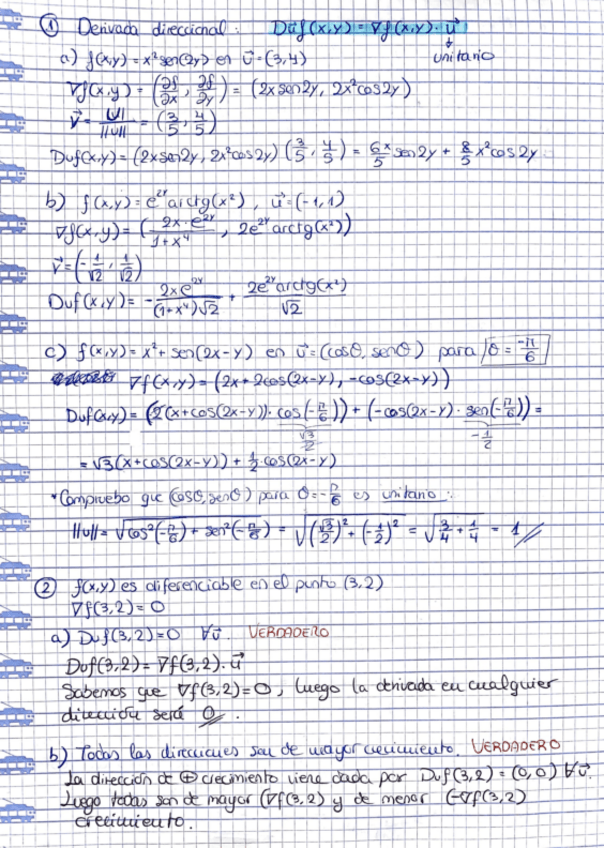 ① Derivada direccional: Duf(x,y) = ∇f(x,y) · u⃗
unitario
a) f(x,y) = x² sen(2y) en u⃗ = (3,4)
∇f(x,y) = (∂f/∂x , ∂f/∂y) = (2x sen2y, 2x² cos2y)
v⃗ = u/||u|| = (3/5 , 4/5)
Duf(x,y) = (2x sen2y, 2x² cos2y) (3/5 , 4/5) = 6x/5 sen2y + 8/5 x² cos2y
b) f(x,y) = e^2y arctg(x²) , u⃗ = (-1,1)
∇f(x,y) = (2x·e^2y/1+x⁴ , 2e^2y arctg(x²))
v⃗ = (-1/√2 , 1/√2)
Duf(x,y) = - 2xe^2y/(1+x⁴)√2 + 2e^2y arctg(x²)/√2
c) f(x,y) = x² + sen(2x-y) en u⃗ = (cosθ, senθ) para θ = -π/6
∇f(x,y) = (2x + 2cos(2x-y), -cos(2x-y))
Duf(x,y) = (2(x+cos(2x-y)) · cos(-π/6)) + (-cos(2x-y) · sen(-π/6)) =
√3/2 -1/2
= √3(x+cos(2x-y)) + 1/2 cos(2x-y)
*Compruebo que (cosθ, senθ) para θ = -π/6 es unitario:
||u|| = √cos²(-π/6) + sen²(-π/6) = √(√3/2)² + (-1/2)² = √3/4 + 1/4 = 1
② f(x,y) es diferenciable en el punto (3,2)
∇f(3,2) = 0
a) Duf(3,2) = 0 ∀u⃗. VERDADERO
Duf(3,2) = ∇f(3,2) · u⃗
Sabemos que ∇f(3,2) = 0, luego la derivada en cualquier
dirección será 0.
b) Todas las direcciones son de mayor crecimiento. VERDADERO
La dirección de ⊕ crecimiento viene dada por Duf(3,2) = (0,0) ∀u⃗.
Luego todas son de mayor (∇f(3,2) y de menor (-∇f(3,2)
crecimiento.